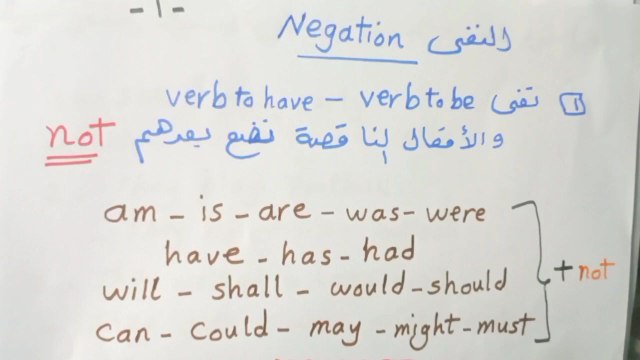 - ١ -
النفى Negation
1 نفى verb to be – verb to have
والأفعال الناقصة نضع بعدهم not
am – is – are – was – were
have – has – had
will – shall – would – should
+ not
can – could – may – might – must